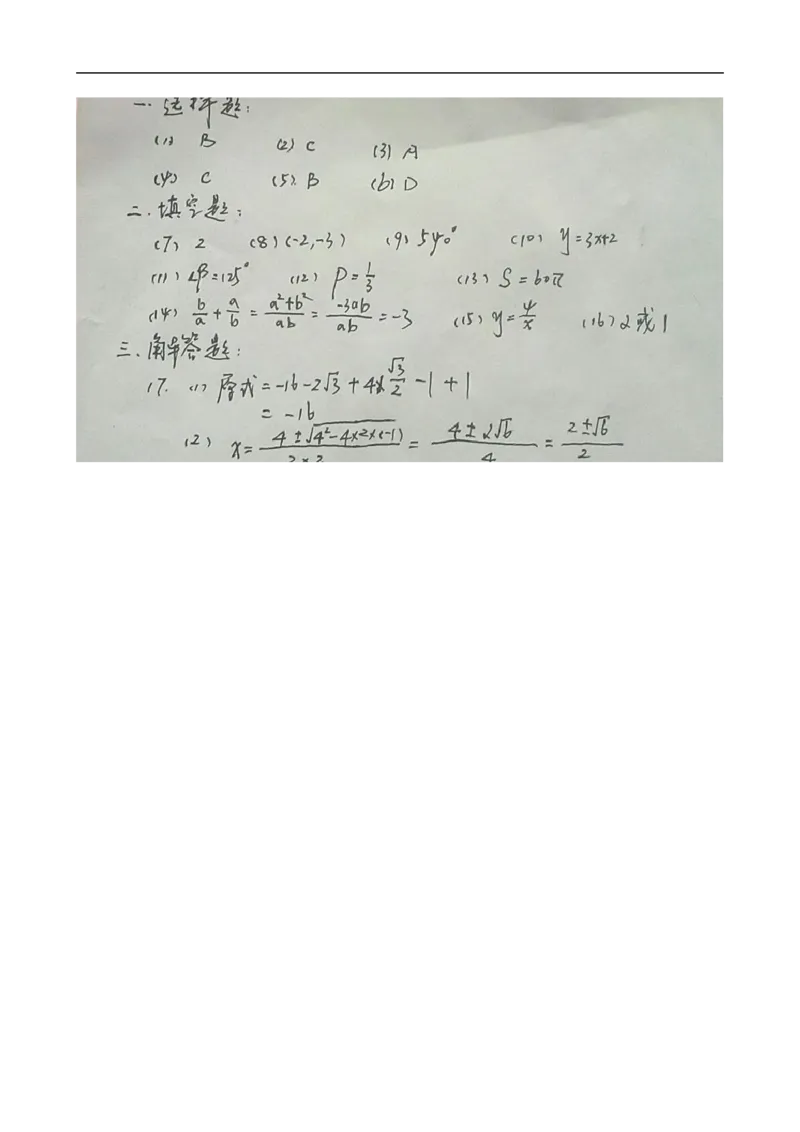 一. 选择题:
(1) B (2) C (3) A
(4) C (5). B (6) D
二. 填空题:
(7) 2 (8) (-2,-3) (9) 540° (10) y=3x+2
(11) ∠β=125° (12) P=1/3 (13) S=60π
(14) b/a + a/b = (a²+b²)/ab = -3ab/ab = -3 (15) y=4/x (16) 2或1
三. 解答题:
17. (1) 原式=-16-2√3+4×√3/2-1+1
= -16
(2) x= (4±√(4²-4×2×(-1)))/(2×2) = (4±2√6)/4 = (2±√6)/2